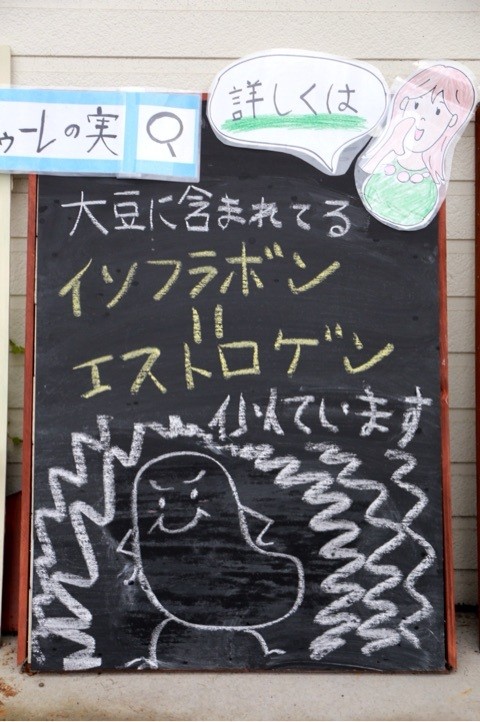 ゥーレの実
詳しくは
大豆に含まれてる
イソフラボン
=
エストロゲン
似ています